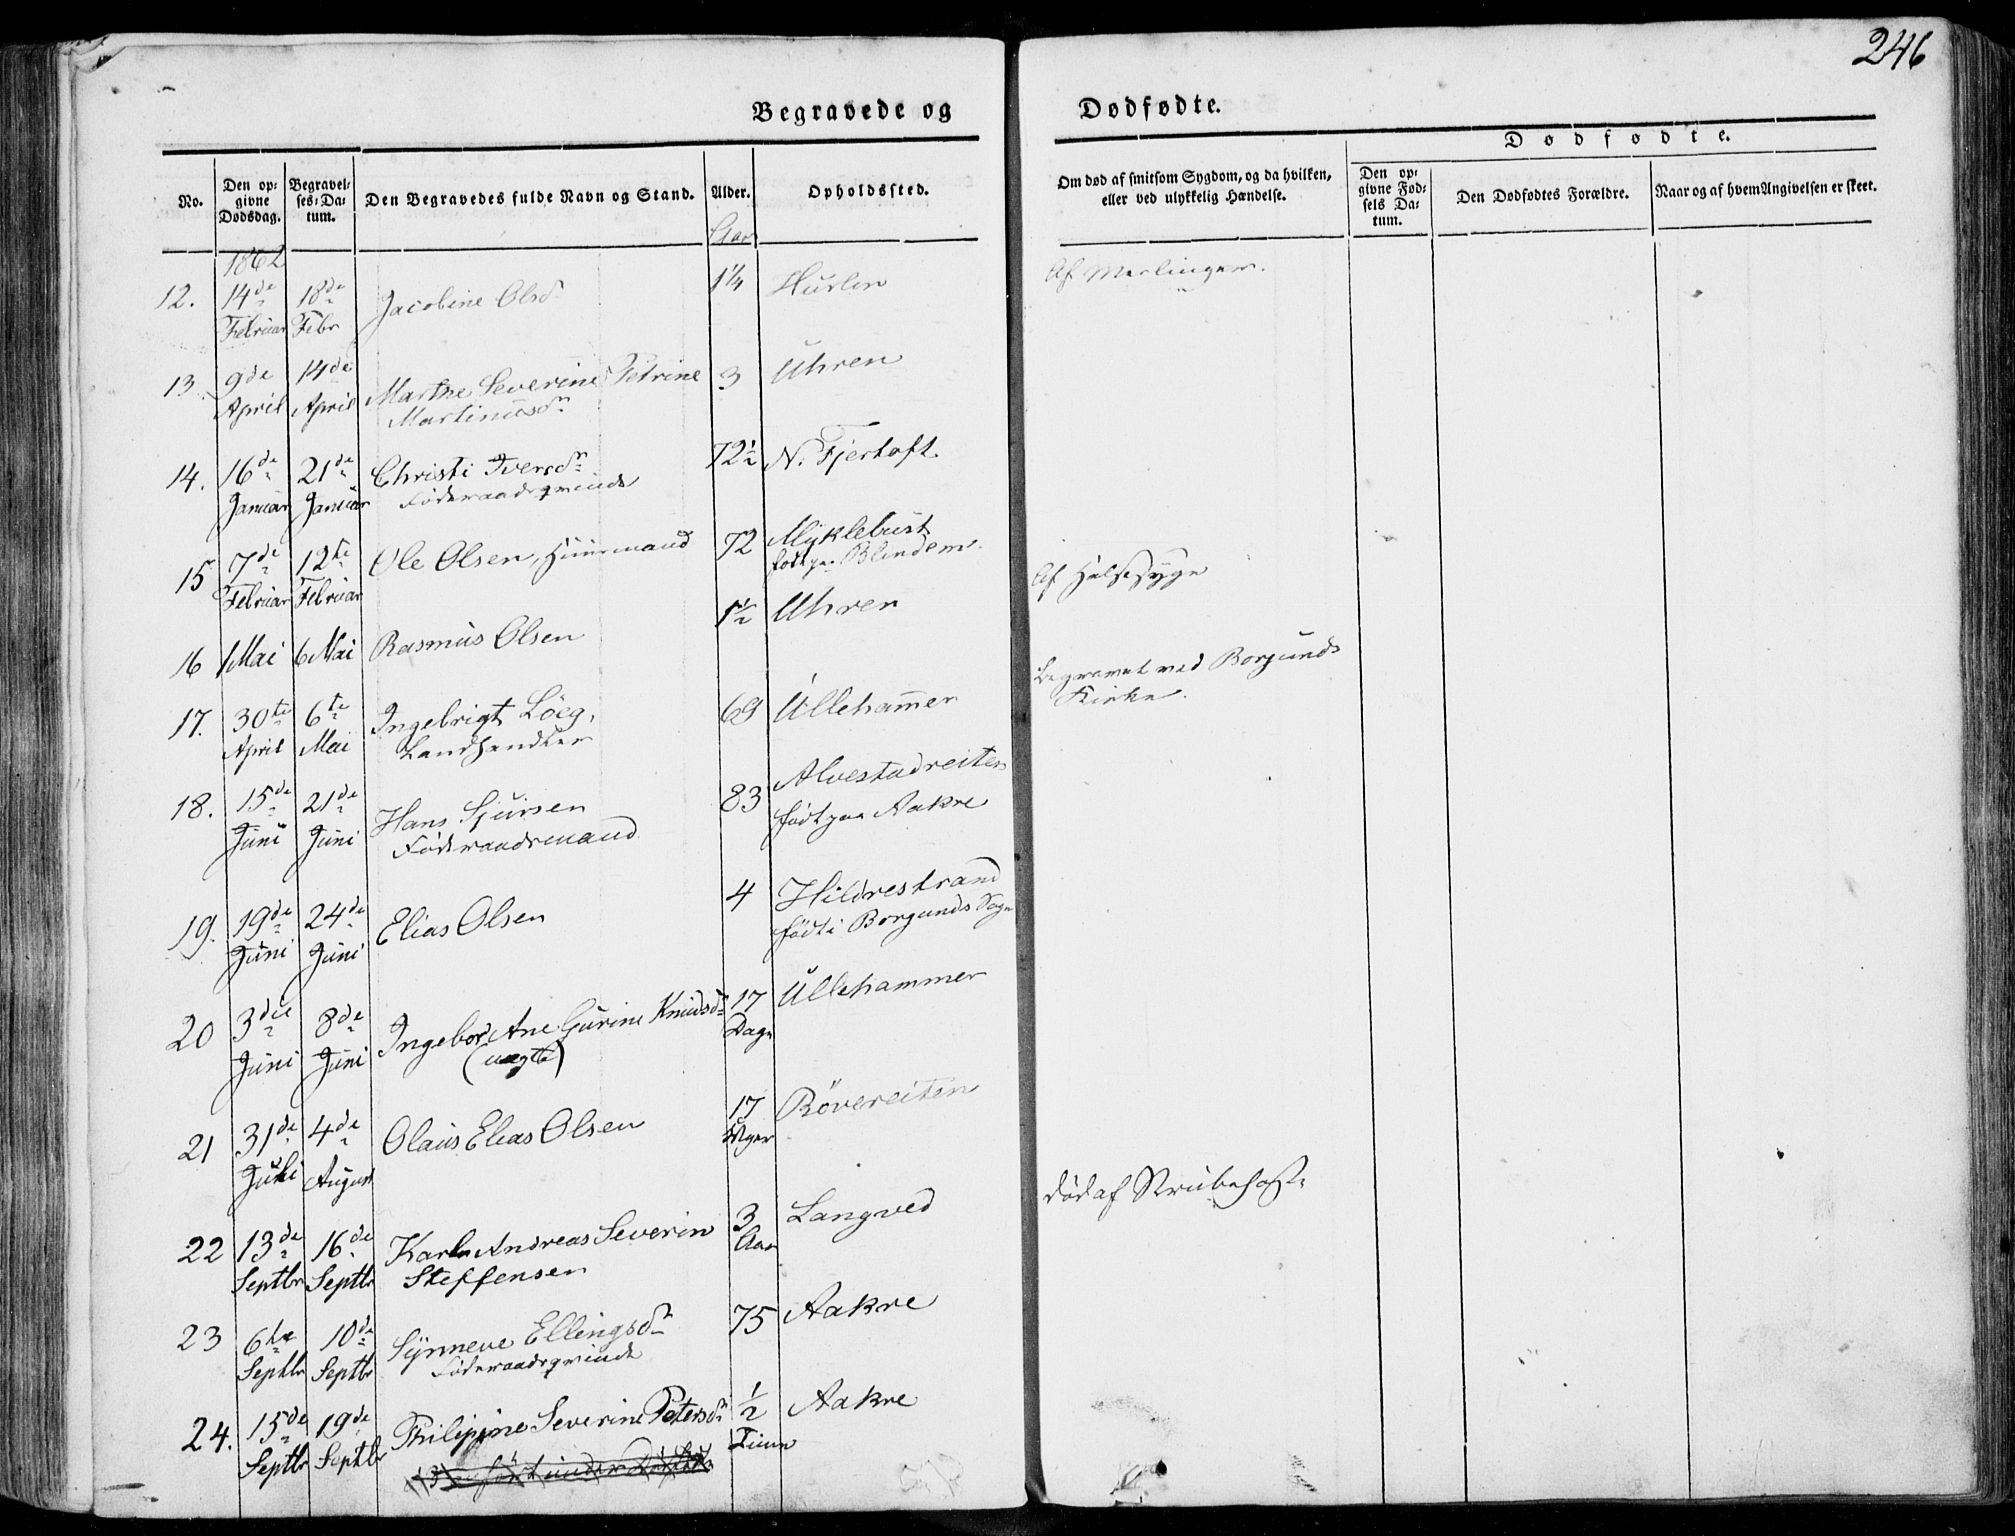 246
Begravede og Dødfødte.
Dødfødte.
No.
Den opgivne Dødsdag.
Begravelses-Datum.
Den Begravedes fulde Navn og Stand.
Alder.
Opholdssted.
Om død af smitsom Sygdom, og da hvilken, eller ved ulykkelig Hændelse.
Den opgivne Fødsels Datum.
Den Dødfødtes Forældre.
Naar og af hvem Angivelsen er skeet.
Aar
1862
12. 14de Februar 18de Febr Jacobine Olsdr 1¼ Hurlen Af Meslinger.
13. 9de April 14de April Marthe Severine Petrine Martinusdr 3 Uhren
14. 16de Januar 21de Januar Christi Iversdr Føderaadsqvinde 72½ N. Fjertoft
15 7de Februar 12te Februar Ole Olsen, Huusmand 72 Myklebust født paa Blindem.
16 1 Mai 6 Mai Rasmus Olsen 1½ Uhren Af Halssyge
17. 30te April 6te Mai Ingebrigt Löeg, Landhandler 69 Ullehammer Begravet ved Borgunds Kirke.
18. 15de Juni 21de Juni Hans Sjursen Føderaadsmand 83 Alvestadreiten født paa Aakre
19. 19de Juni 24de Juni Elias Olsen 4 Hildrestrand født i Borgunds Sogn
20 3die Juni 8de Juni Ingebor Ane Gurine Knudsdr (uægte) 17 Dage Ullehammer
21 31de Juli 4de August Olaus Elias Olsen 17 Uger Rövereiten
22 13de Septbr 16de Septbr Karl Andreas Severin Steffensen 3 Aar Langved død af Strubehoste
23 6te Septbr 10de Septbr Synneve Ellingsdr Føderaadsqvinde 75 Aakre
24. 15de Septbr 19de Septbr Philippine Severine Petersdr ½ Time Aakre